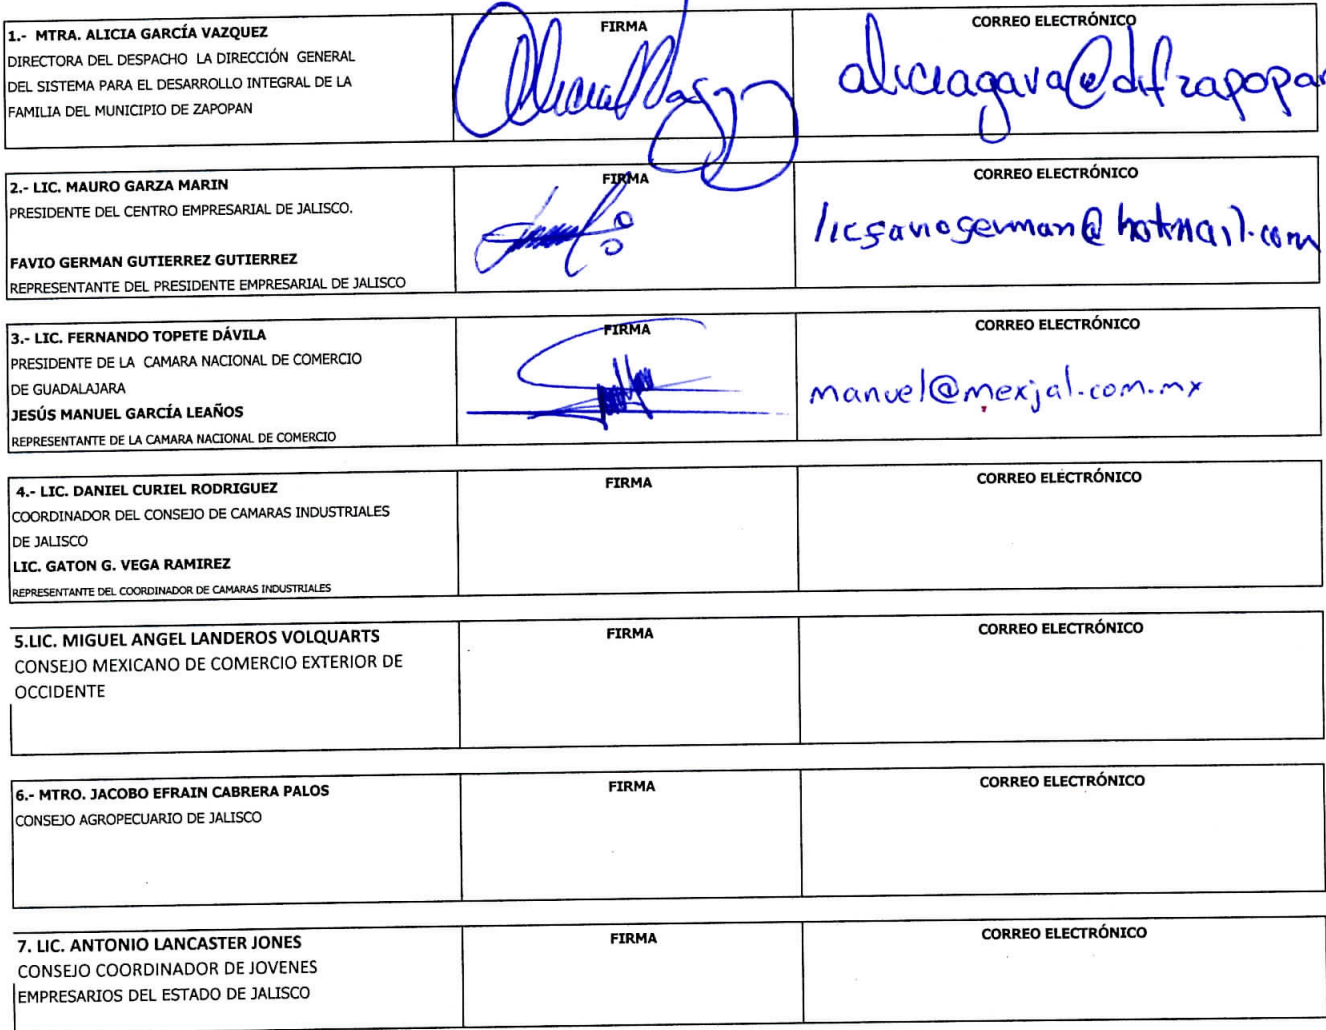 1.- MTRA. ALICIA GARCÍA VAZQUEZ
DIRECTORA DEL DESPACHO LA DIRECCIÓN GENERAL
DEL SISTEMA PARA EL DESARROLLO INTEGRAL DE LA
FAMILIA DEL MUNICIPIO DE ZAPOPAN
FIRMA
CORREO ELECTRÓNICO
aliciagava@difzapopan
2.- LIC. MAURO GARZA MARIN
PRESIDENTE DEL CENTRO EMPRESARIAL DE JALISCO.
FAVIO GERMAN GUTIERREZ GUTIERREZ
REPRESENTANTE DEL PRESIDENTE EMPRESARIAL DE JALISCO
FIRMA
CORREO ELECTRÓNICO
licfaviogerman@hotmail.com
3.- LIC. FERNANDO TOPETE DÁVILA
PRESIDENTE DE LA CAMARA NACIONAL DE COMERCIO
DE GUADALAJARA
JESÚS MANUEL GARCÍA LEAÑOS
REPRESENTANTE DE LA CAMARA NACIONAL DE COMERCIO
FIRMA
CORREO ELECTRÓNICO
manuel@mexjal.com.mx
4.- LIC. DANIEL CURIEL RODRIGUEZ
COORDINADOR DEL CONSEJO DE CAMARAS INDUSTRIALES
DE JALISCO
LIC. GATON G. VEGA RAMIREZ
REPRESENTANTE DEL COORDINADOR DE CAMARAS INDUSTRIALES
FIRMA
CORREO ELECTRÓNICO
5.LIC. MIGUEL ANGEL LANDEROS VOLQUARTS
CONSEJO MEXICANO DE COMERCIO EXTERIOR DE
OCCIDENTE
FIRMA
CORREO ELECTRÓNICO
6.- MTRO. JACOBO EFRAIN CABRERA PALOS
CONSEJO AGROPECUARIO DE JALISCO
FIRMA
CORREO ELECTRÓNICO
7. LIC. ANTONIO LANCASTER JONES
CONSEJO COORDINADOR DE JOVENES
EMPRESARIOS DEL ESTADO DE JALISCO
FIRMA
CORREO ELECTRÓNICO